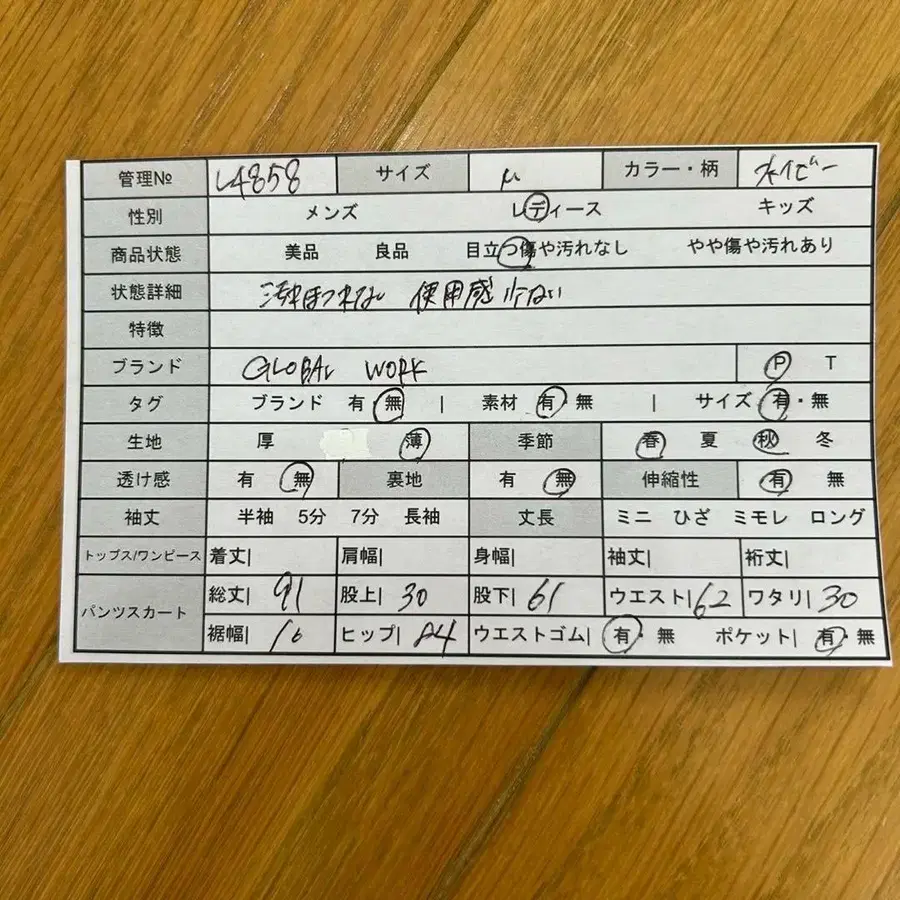 管理№ L4858 サイズ M カラー・柄 ネイビー
性別 メンズ レディース キッズ
商品状態 美品 良品 目立つ傷や汚れなし やや傷や汚れあり
状態詳細 汚れほつれなし 使用感少ない
特徴
ブランド GLOBAL WORK P T
タグ ブランド 有・無 | 素材 有・無 | サイズ 有・無
生地 厚 薄 季節 春 夏 秋 冬
透け感 有 無 裏地 有 無 伸縮性 有 無
袖丈 半袖 5分 7分 長袖 丈長 ミニ ひざ ミモレ ロング
トップス/ワンピース 着丈| 肩幅| 身幅| 袖丈| 裄丈|
パンツスカート 総丈| 91 股上| 30 股下| 61 ウエスト| 62 ワタリ| 30
裾幅| 16 ヒップ| 84 ウエストゴム| 有・無 ポケット| 有・無